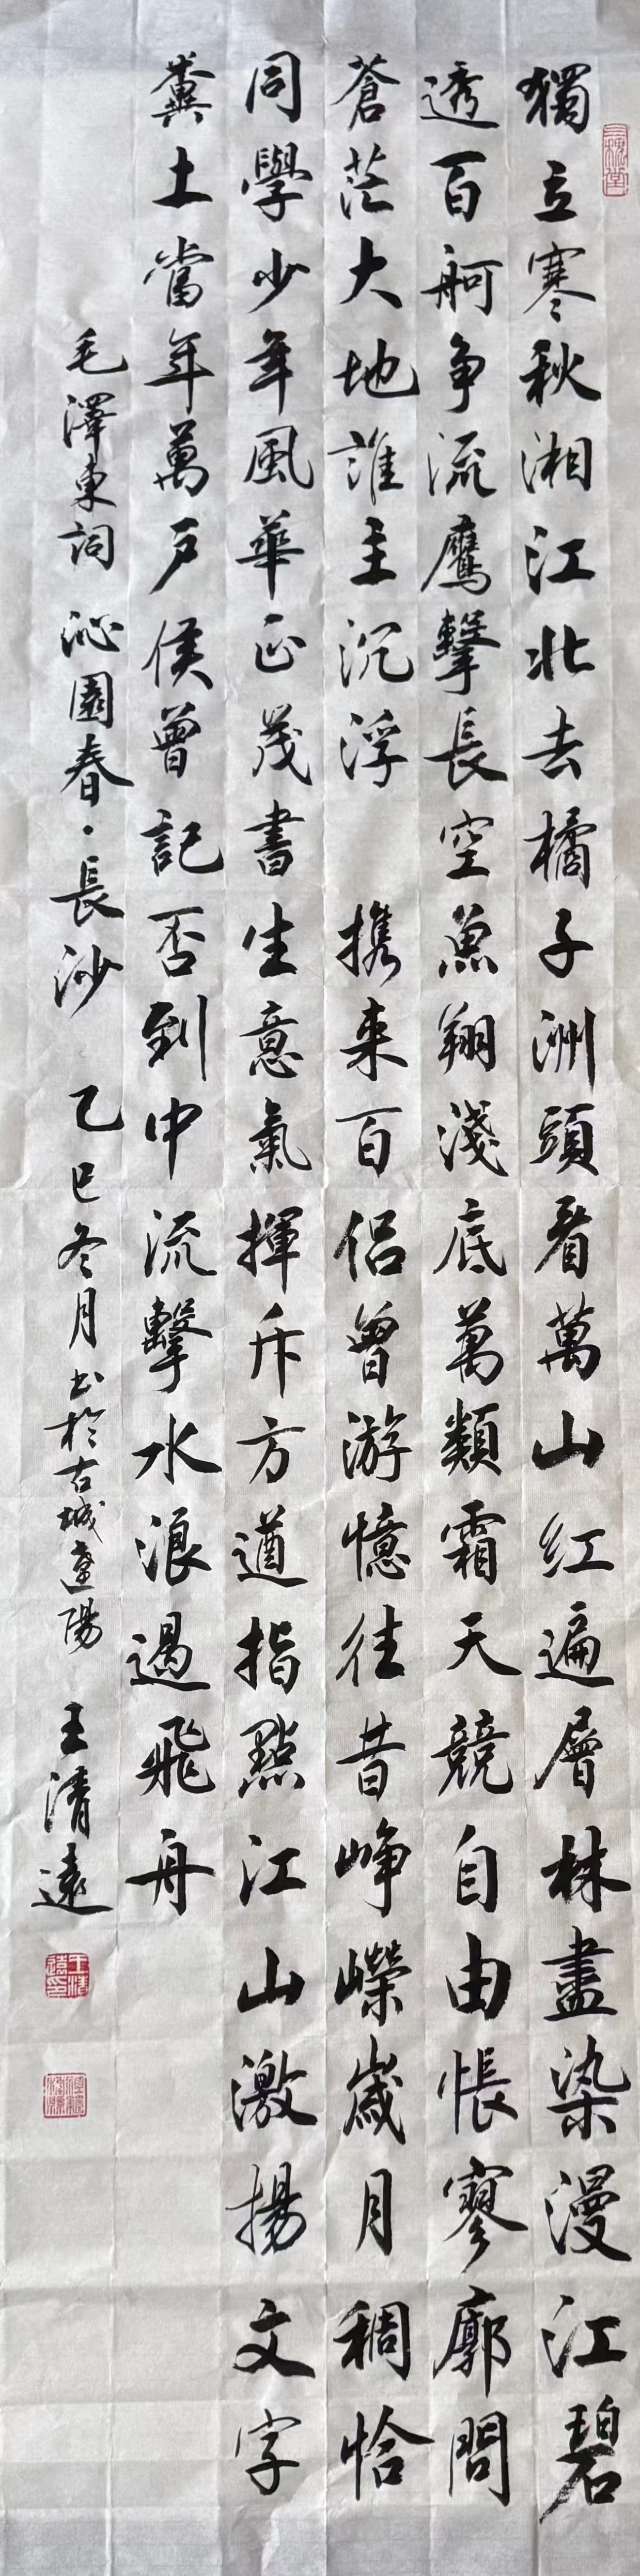 三槐堂
獨立寒秋湘江北去橘子洲頭看萬山红遍層林盡染漫江碧
透百舸争流鷹擊長空魚翔淺底萬類霜天競自由悵寥廓問
蒼茫大地誰主沉浮 携来百侣曾游憶往昔峥嶸歲月稠恰
同學少年風華正茂書生意氣揮斥方遒指點江山激揚文字
糞土當年萬户侯曾記否到中流擊水浪遏飛舟
毛澤東詞 沁園春·長沙 乙巳冬月书於古城遼陽 王清遠
王清遠印